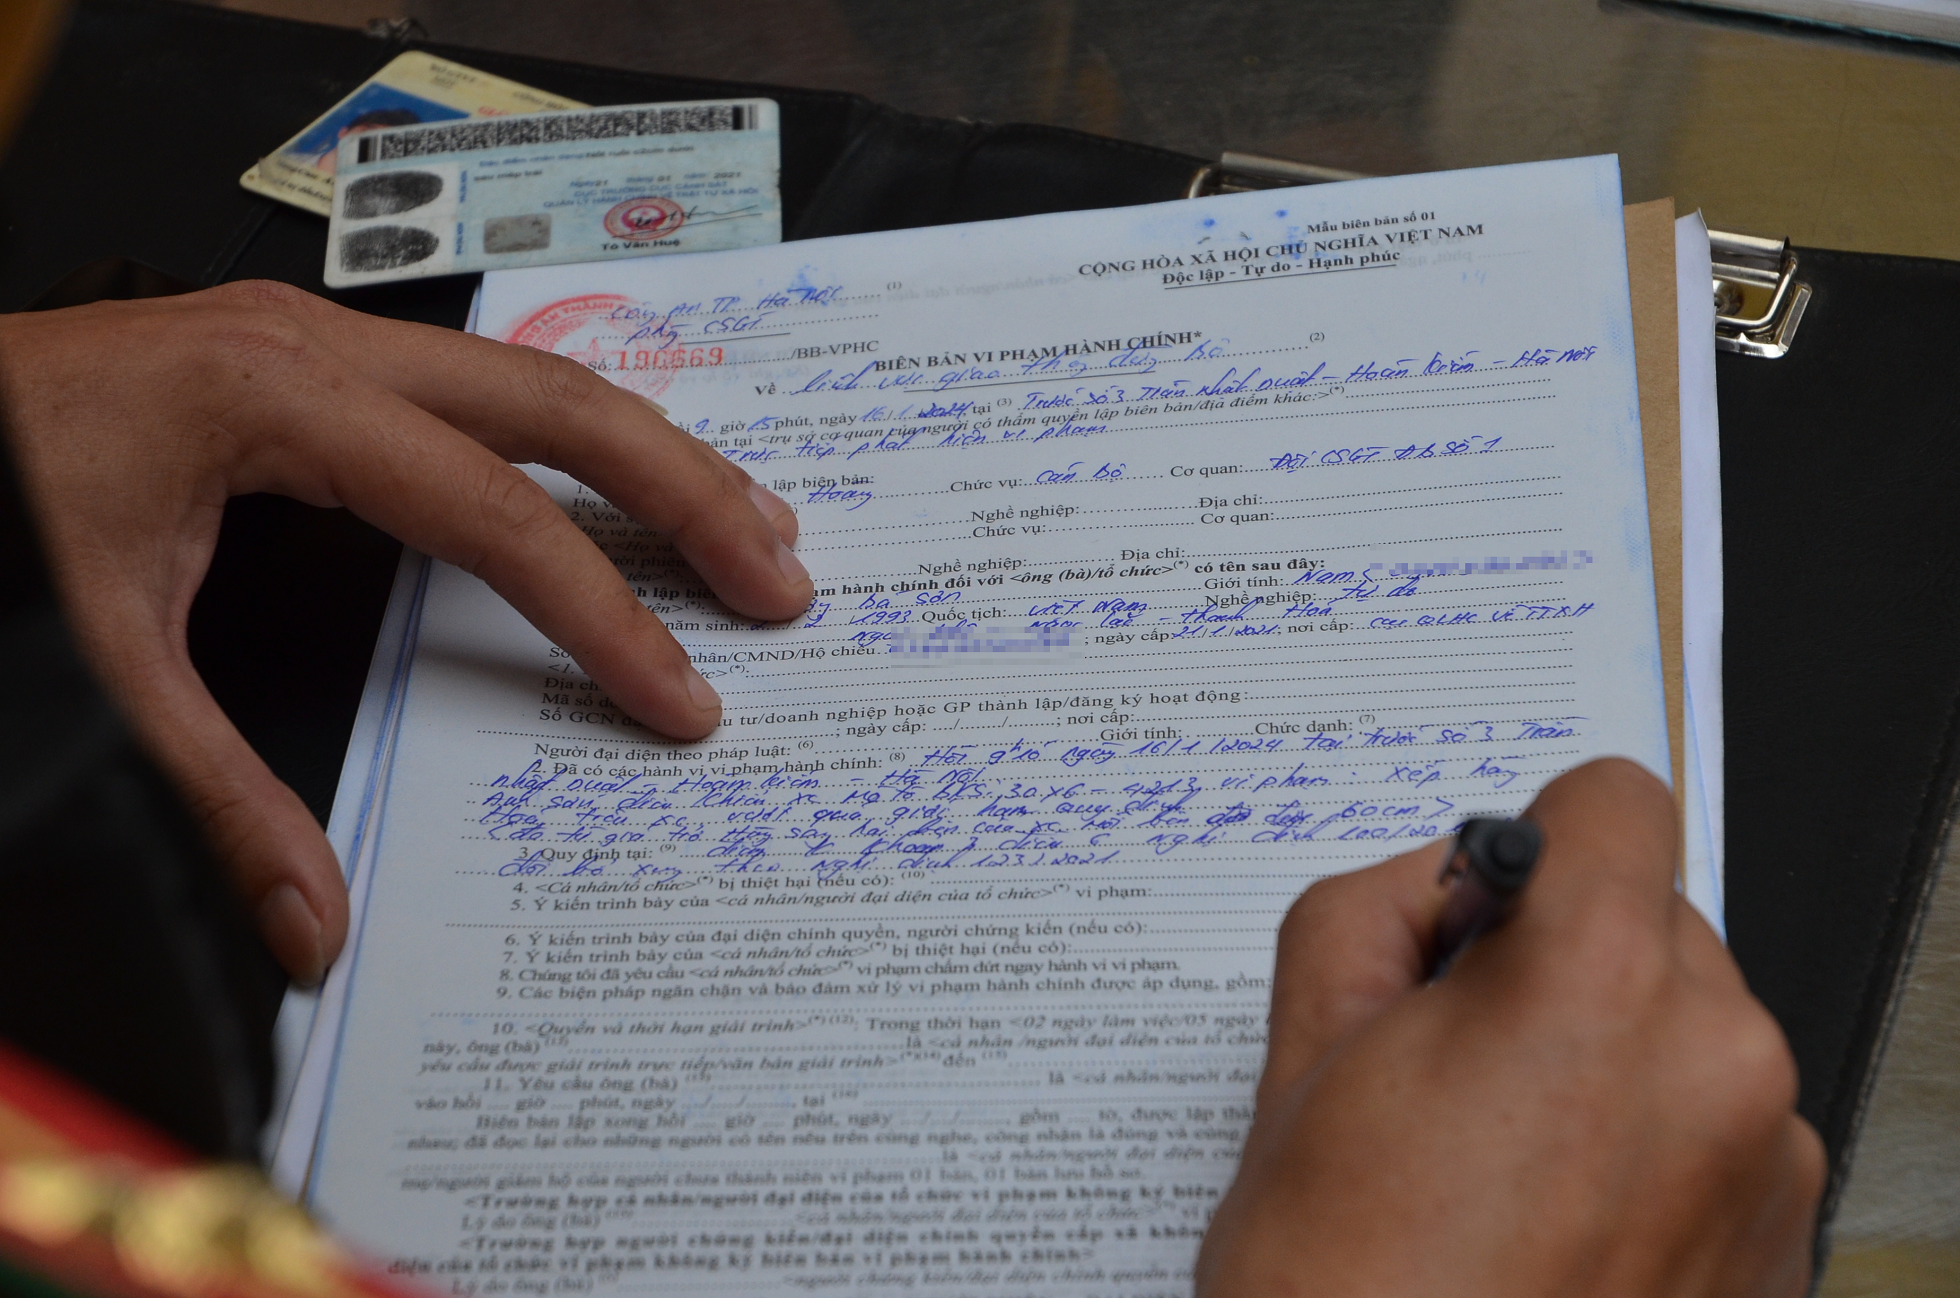 Đặc điểm nhân dạng:
Ngày 21 tháng 01 năm 2021
CỤC TRƯỞNG CỤC CẢNH SÁT
QUẢN LÝ HÀNH CHÍNH VỀ TRẬT TỰ XÃ HỘI
Tô Văn Huệ
Mẫu biên bản số 01
CỘNG HÒA XÃ HỘI CHỦ NGHĨA VIỆT NAM
Độc lập - Tự do - Hạnh phúc
Công An TP Hà Nội (1)
phòng CSGT
Số: 190669 /BB-VPHC
BIÊN BẢN VI PHẠM HÀNH CHÍNH*
Về lĩnh vực giao thông đường bộ (2)
9 giờ 15 phút, ngày 16/1/2024 tại (3) Trước số 3 Trần Nhật Duật - Hoàn Kiếm - Hà Nội
bản tại <trụ sở cơ quan của người có thẩm quyền lập biên bản/địa điểm khác:>(*)
Trực tiếp phát hiện vi phạm
1. lập biên bản:
Họ v Hoàng Chức vụ: Cán bộ Cơ quan: Đội CSGT ĐB Số 1
2. Với s Nghề nghiệp: Địa chỉ:
Họ và tên Chức vụ: Cơ quan:
Nghề nghiệp: Địa chỉ:
h lập biê ạm hành chính đối với <ông (bà)/tổ chức>(*) có tên sau đây:
tên>(*): bá sơn Giới tính: Nam
năm sinh: 2/2/1993 Quốc tịch: Việt Nam Nghề nghiệp: Tự do
Ngọc Lặc - Thanh Hoá
Số nhân/CMND/Hộ chiếu: ; ngày cấp: 21/1/2021; nơi cấp: Cục QLHC về TTXH
<1. rc>(*):
Địa ch
Mã số d
Số GCN đ u tư/doanh nghiệp hoặc GP thành lập/đăng ký hoạt động:
; ngày cấp: / / ; nơi cấp:
Người đại diện theo pháp luật: (6) Giới tính: Chức danh: (7)
2. Đã có các hành vi vi phạm hành chính: (8) Hồi ngày 16/1/2024 tại trước số 3 Trần
Nhật Duật - Hoàn Kiếm - Hà Nội
Anh Sơn điều khiển xe Mô tô BKS: 30X6-4213 vi phạm: xếp hàng
Hoá trên xe vượt quá giới hạn quy định
60cm>
3. Quy định tại: (9) điểm k khoản 3 điều 6 Nghị định 100/20
đổi bổ xung theo Nghị định 123/2021
4. <Cá nhân/tổ chức>(*) bị thiệt hại (nếu có): (10)
5. Ý kiến trình bày của <cá nhân/người đại diện của tổ chức>(*) vi phạm:
6. Ý kiến trình bày của đại diện chính quyền, người chứng kiến (nếu có):
7. Ý kiến trình bày của <cá nhân/tổ chức>(*) bị thiệt hại (nếu có):
8. Chúng tôi đã yêu cầu <cá nhân/tổ chức>(*) vi phạm chấm dứt ngay hành vi vi phạm.
9. Các biện pháp ngăn chặn và bảo đảm xử lý vi phạm hành chính được áp dụng, gồm:
10. <Quyền và thời hạn giải trình>(*) (12): Trong thời hạn <02 ngày làm việc/05 ngày
này, ông (bà) (13) là <cá nhân/người đại diện của tổ chức
yêu cầu được giải trình trực tiếp/văn bản giải trình>(*)(14) đến (15)
11. Yêu cầu ông (bà) (13) là <cá nhân/người đại
vào hồi .... giờ .... phút, ngày ..../..../......, tại (16)
Biên bản lập xong hồi .... giờ .... phút, ngày ..../..../......, gồm .... tờ, được lập thà
nhau; đã đọc lại cho những người có tên nêu trên cùng nghe, công nhận là đúng và cùng
là <cá nhân/người đại diện của
mẹ/người giám hộ của người chưa thành niên vi phạm 01 bản, 01 bản lưu hồ sơ.
<Trường hợp cá nhân/người đại diện của tổ chức vi phạm không ký biên
Lý do ông (bà) <cá nhân/người đại diện của tổ chức>(*) vi
<Trường hợp người chứng kiến/đại diện chính quyền cấp xã không
diện của tổ chức vi phạm không ký biên bản vi phạm hành chính>
Lý do ông (bà) <người chứng kiến/đại diện chính quyền